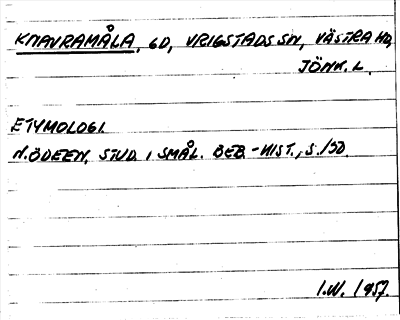 KNAVRAMÅLA, GD, VRIGSTADS SN, VÄSTRA HD,
JÖNK. L.
ETYMOLOGI.
N. ÖDEEN, STUD. I SMÅL. BEB.-HIST., S. 150.
I.W. 1957.